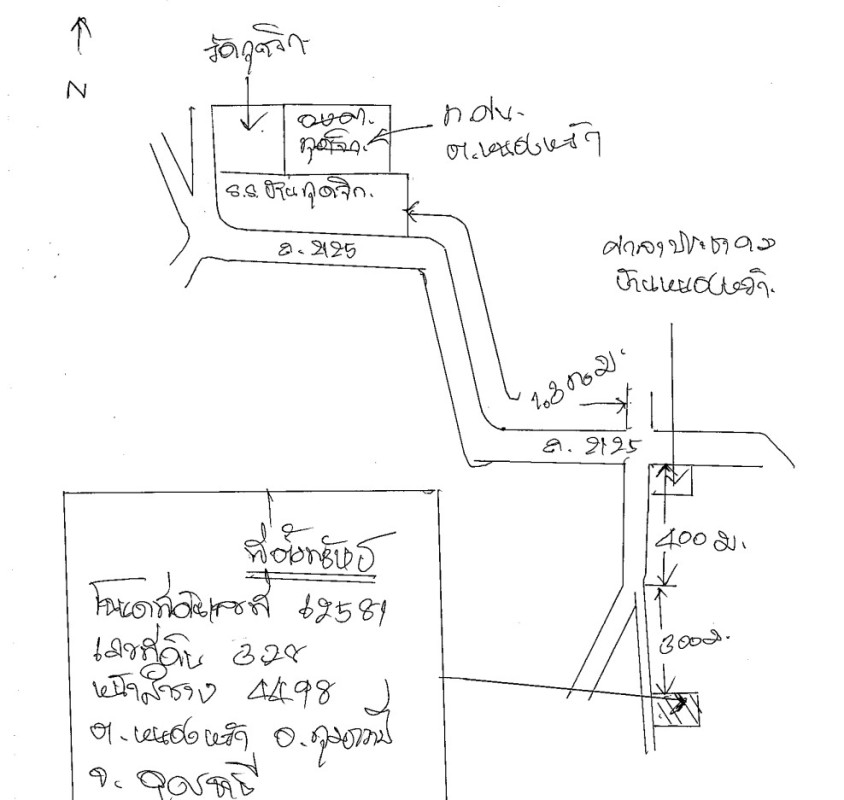 N
วัดกุดจิก
อบต.
กุดจิก
ต.หนองหว้า
ร.ร.บ้านกุดจิก.
ถ. 2125
ศาลาประชาคม
บ้านหนองหว้า.
ถ. 2125
400 ม.
300 ม.
ที่ตั้งทรัพย์
โฉนดที่ดินเลขที่ 62581
เลขที่ดิน 328
หน้าสำรวจ 4498
ต.หนองหว้า อ.กุมภวาปี
จ. อุดรธานี